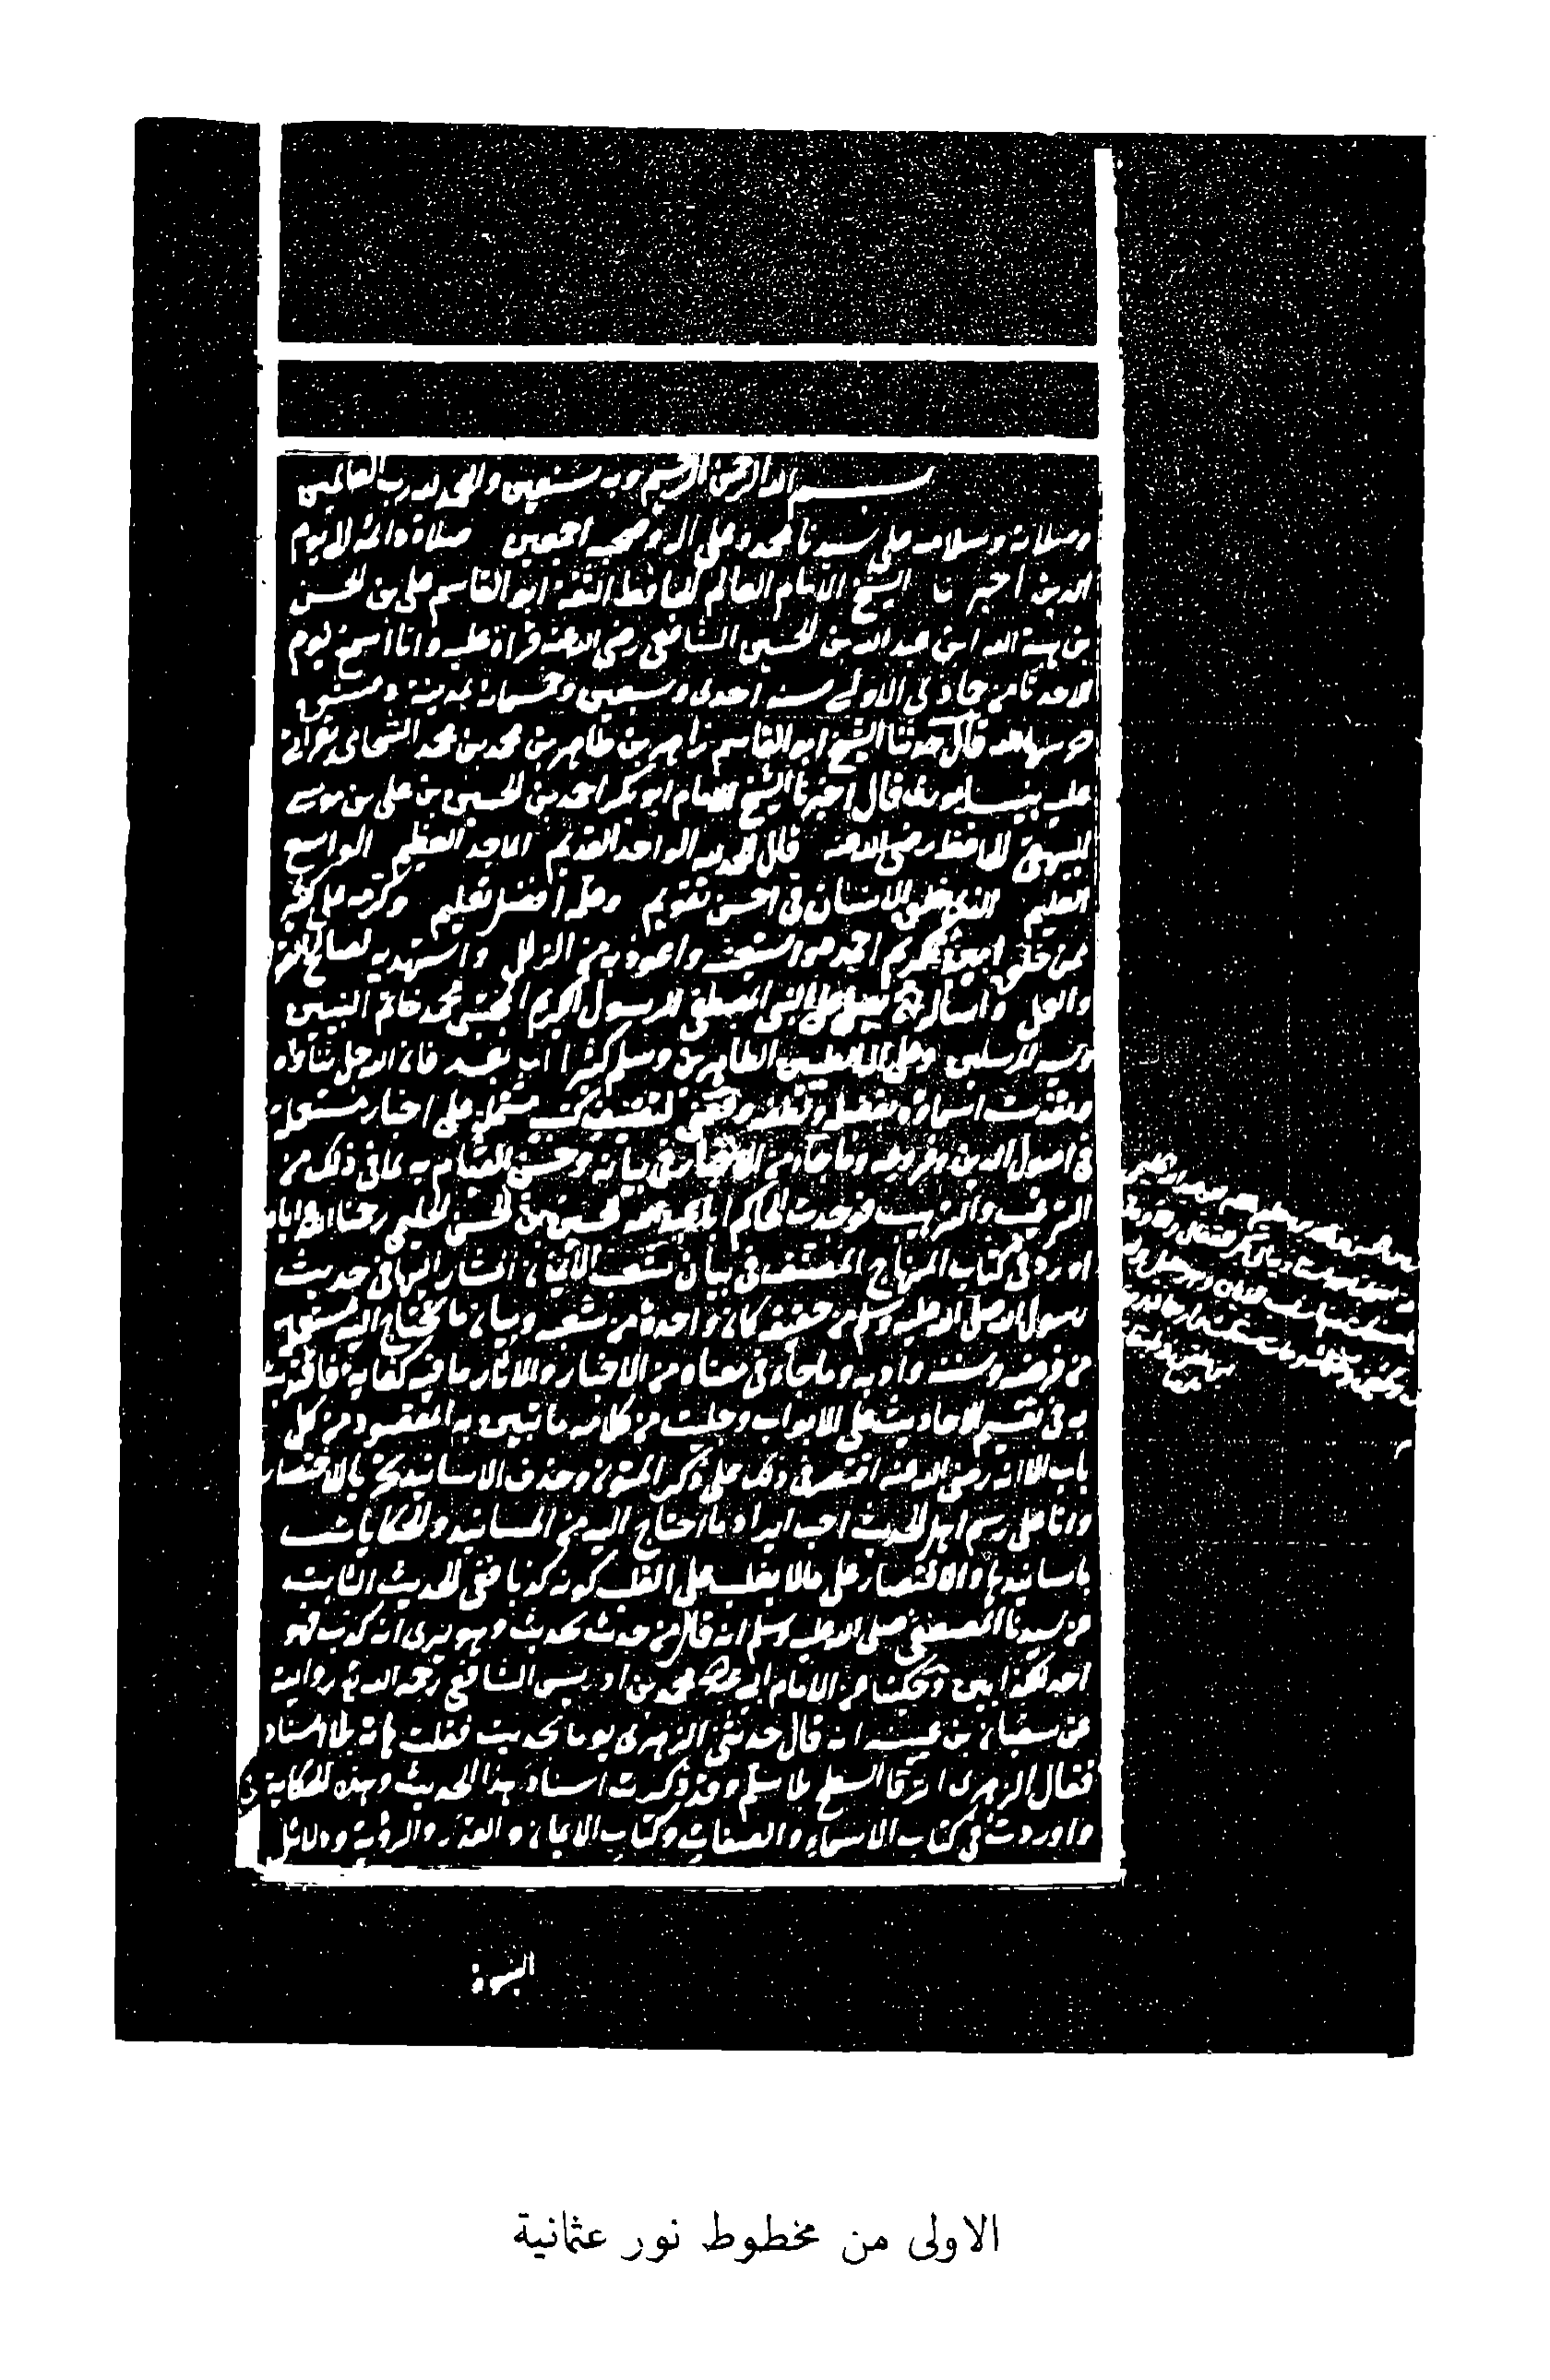 بسم الله الرحمن الرحيم وبه نستعين والحمد لله رب العالمين
وصلاته وسلامه على سيدنا محمد وعلى اله وصحبه اجمعين صلاة دائمة الى يوم
الدين اخبرنا الشيخ الامام العالم الحافظ الثقة ابو القاسم على بن الحسن
بن هبة الله ابن عبد الله بن الحسين الشافعى رضى الله عنه قراة عليه وانا اسمع يوم
الاحد ثامن جادى الاولى سنه احدى وسبعين وخمسماية بمدينة دمشق
حرسها الله قال حدثنا الشيخ ابو القاسم زاهر بن طاهر بن محمد بن محمد الشحامى بقراتى
عليه بنيسابور قال اخبرنا الشيخ الامام ابو بكر احمد بن الحسين بن على بن موسى
البيهقى الحافظ رضى الله عنه قال الحمد لله الواحد القديم الماجد العظيم الواسع
العليم الذى خلق الانسان فى احسن تقويم وعلمه افضل تعليم وكرمه على كثير
ممن خلق ابين تكريم احمده واستعينه واعوذ به من الزلل واستهديه لصالح القول
والعمل واساله ان يصلى على النبى المصطفى الرسول الكريم المجتبى محمد خاتم النبيين
وسيد المرسلين وعلى اله الطيبين الطاهرين وسلم كثيرا اما بعد فان الله جل ثناؤه
وتقدست اسماؤه بفضله ولطفه وفقنى لتصنيف كتب مشتملة على اخبار مستعملة
فى اصول الدين وفروعه وما جاء من الاخبار فى بيانه وحسن القيام به لما فى ذلك من
الترغيب والترهيب فوجدت الحاكم ابا عبد الله الحسين بن الحسن الحليمى رحمنا الله واياه
اورد فى كتاب المنهاج المصنف فى بيان شعب الايمان المشار اليها فى حديث
رسول الله صلى الله عليه وسلم من حقيقة كل واحدة من شعبه وبيان ما يحتاج اليه مستعمله
من فرضه وسننه وادبه وما جاء فى معناه من الاخبار والاثار ما فيه كفاية فاقتديت
به فى تقسيم الاحاديث على الابواب وحكيت من كلامه ما تبين به المقصود من كل
باب الا انه رضى الله عنه اقتصر فى ذلك على ذكر المتون وحذف الاسانيد تحريا للاختصار
وانا على رسم اهل الحديث احب ايراد ما احتاج اليه من المسانيد والحكايات
باسانيدها والاقتصار على ما لا يغلب على القلب كونه كذبا ففى الحديث الثابت
عن سيدنا المصطفى صلى الله عليه وسلم انه قال من حدث بحديث وهو يرى انه كذب فهو
احد الكاذبين وحكينا عن الامام ابى عبد الله محمد بن ادريس الشافعى رحمه الله فى روايته
عن سفيان بن عيينه انه قال حدثنى الزهرى يوما بحديث فقلت هاته بلا اسناد
فقال الزهرى اترقا السطح بلا سلم وقد ذكرت اسناد هذا الحديث وهذه الحكاية
واوردت فى كتاب الاسماء والصفات وكتاب الايمان والقدر والرؤية ودلائل
النبوة
الاولى من مخطوط نور عثمانية